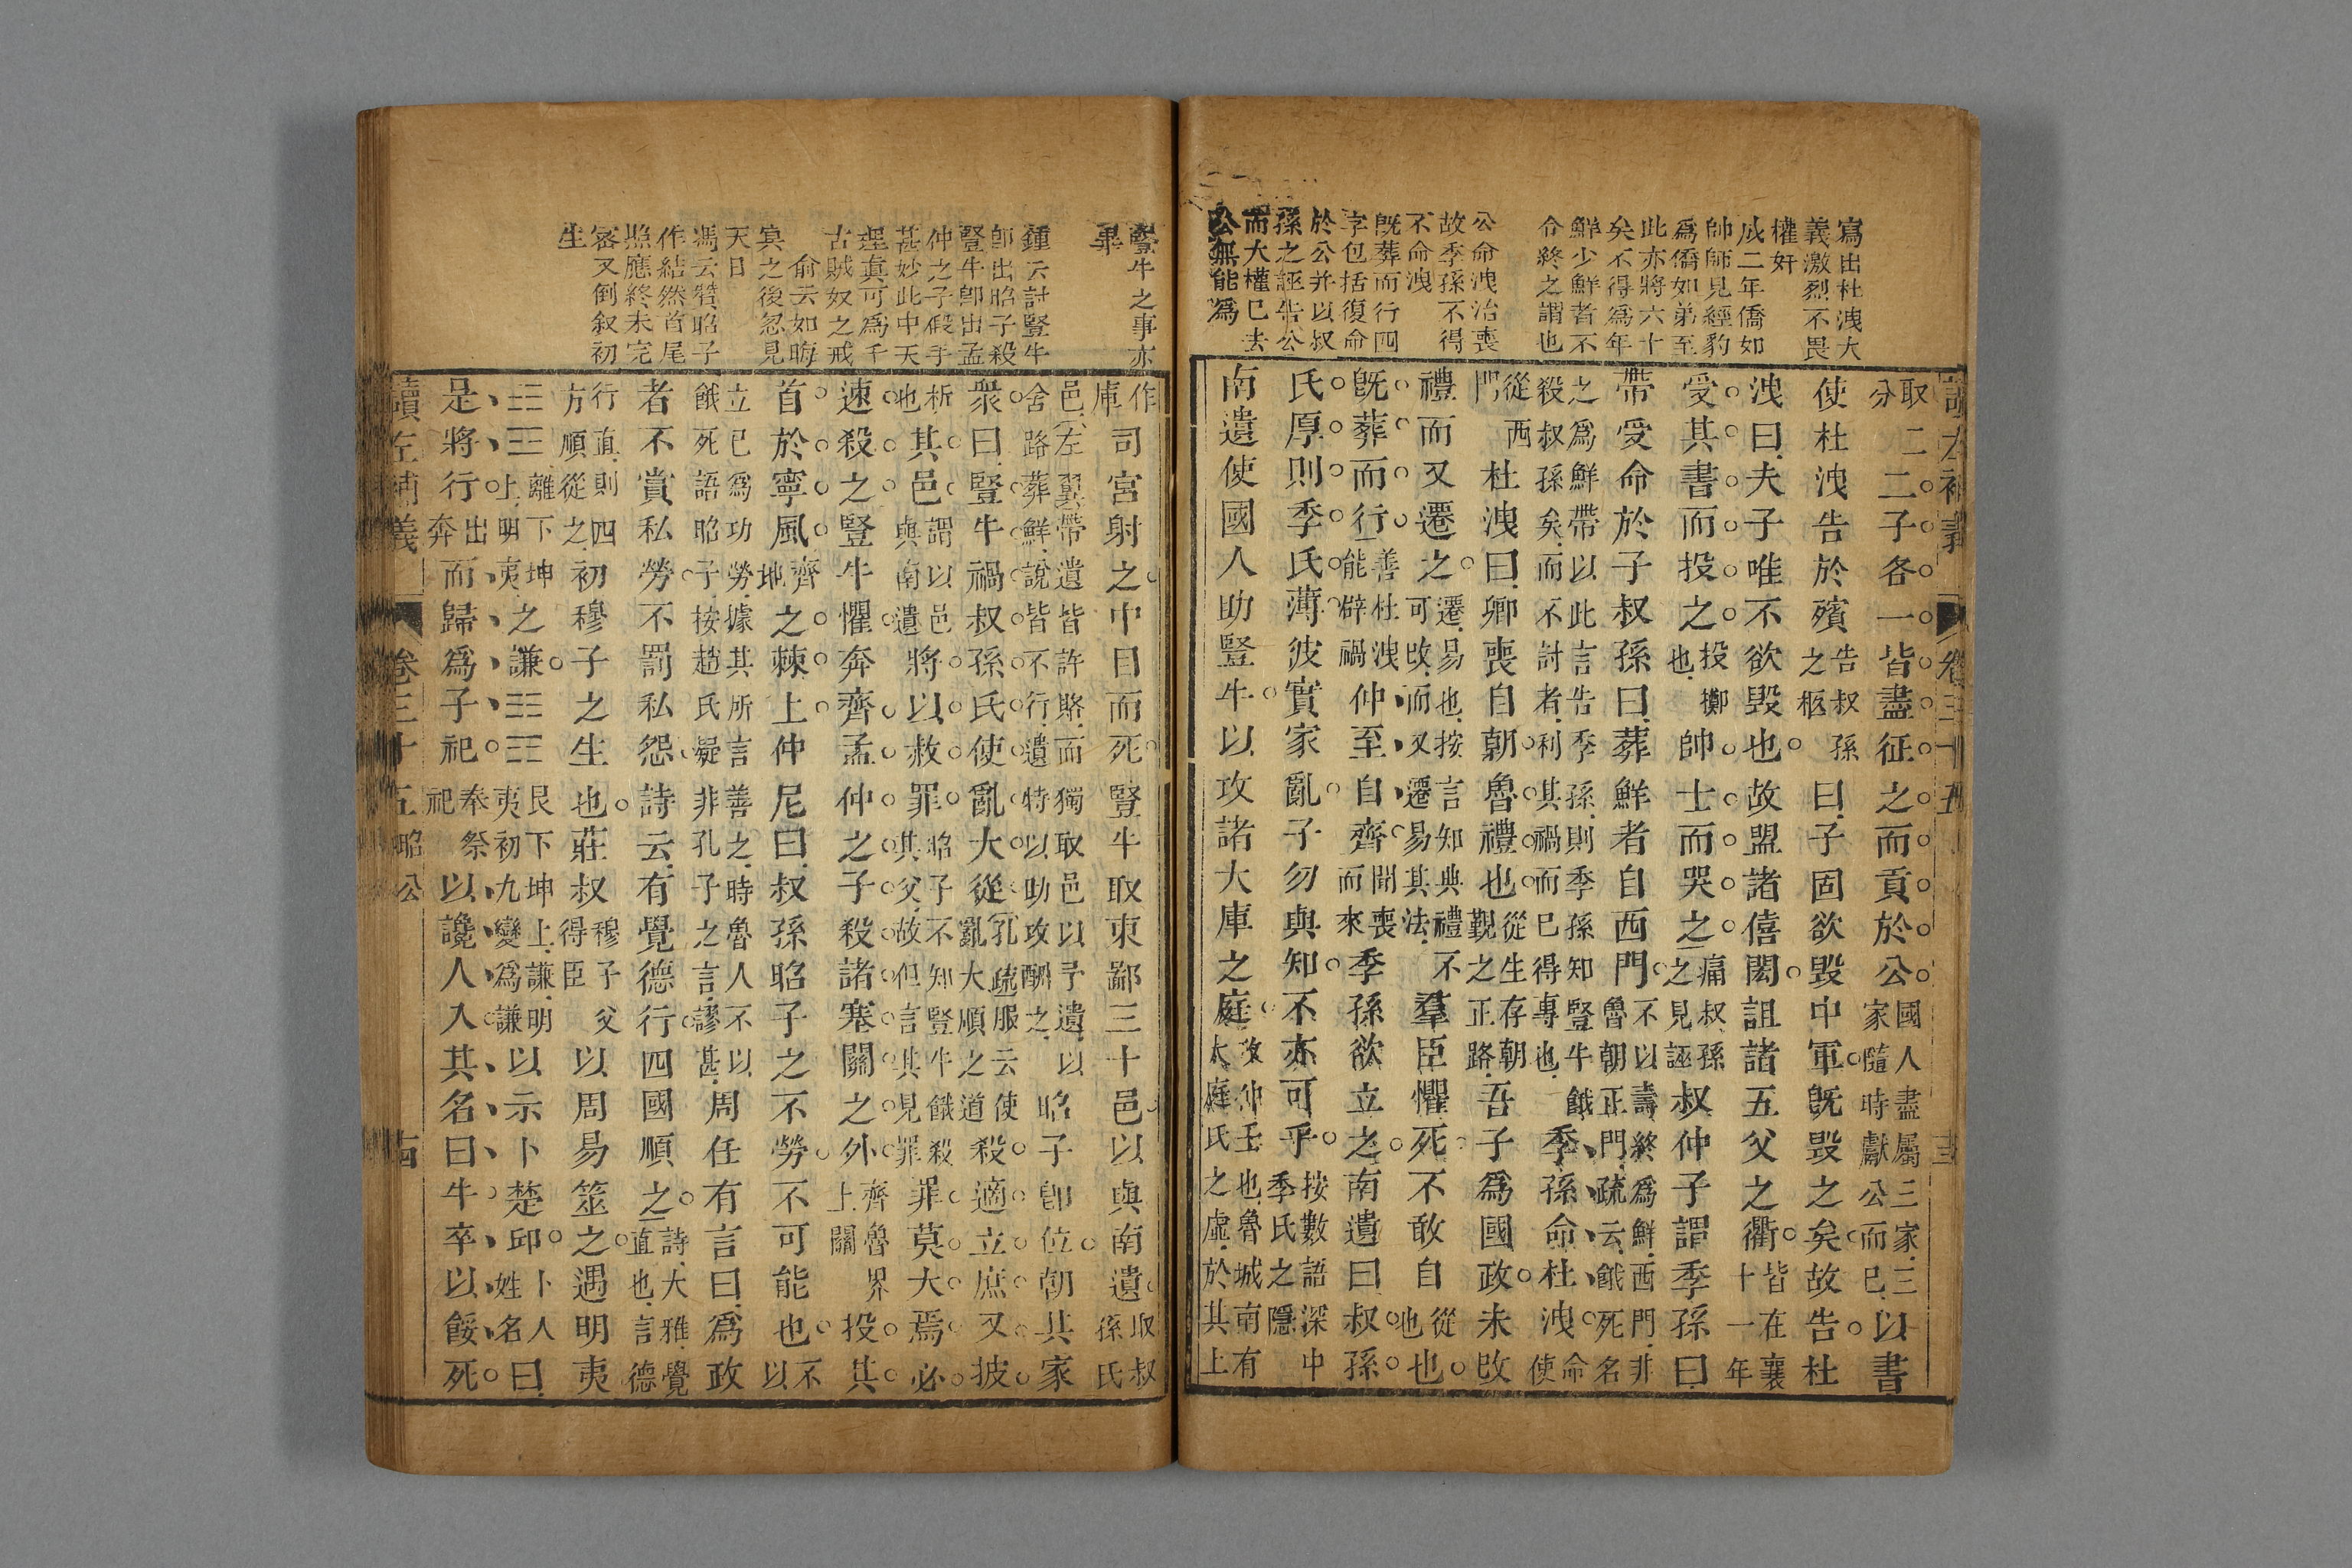 寫出杜洩大
義激烈不畏
權奸
成二年僑如
帥師見經豹
為僑如弟至
此亦將六十
矣不得為年
鮮少鮮者不
令終之謂也
公命洩治喪
故季孫不得
不命洩
既葬而行四
字包括復命
於公并以叔
孫之誣告公
而大權已去
公無能為
讀左補義 卷三十五 三
取二分二子各一皆盡征之而貢於公國人盡屬三家三家隨時獻公而已以書
使杜洩告於殯告叔孫之柩曰子固欲毀中軍既毀之矣故告杜
洩曰夫子唯不欲毀也故盟諸僖閎詛諸五父之衢皆在襄十一年
受其書而投之投擲也帥士而哭之痛叔孫之見誣叔仲子謂季孫曰
帶受命於子叔孫曰葬鮮者自西門不以壽終為鮮西門非魯朝正門疏云餓死名
之為鮮帶以此言告季孫則季孫知豎牛餓殺叔孫矣而不討者利其禍而已得專也季孫命杜洩命使
從西門杜洩曰卿喪自朝魯禮也從生存朝覲之正路吾子為國政未改
禮而又遷之遷易也按言知典禮不可改而又遷易其法羣臣懼死不敢自從也也
既葬而行善杜洩能辟禍仲至自齊聞喪而來季孫欲立之南遺曰叔孫
氏厚則季氏薄彼實家亂子勿與知不亦可乎按數語深中季氏之隱
南遺使國人助豎牛以攻諸大庫之庭攻仲壬也魯城南有大庭氏之虛於其上
豎牛之事亦
畢
鍾云討豎牛
卽出昭子殺
豎牛卽出孟
仲之子假手
甚妙此中天
理真可為千
古賊奴之戒
俞云如晦
冥之後忽見
天日
馮云答昭子
作結然首尾
照應終未完
密又倒叙初
生
作庫司宮射之中目而死豎牛取東鄙三十邑以與南遺取叔孫氏
邑左翼帶遺皆許賂而獨取邑以予遺以舍路葬鮮說皆不行遺特以助攻酬之昭子卽位朝其家
衆曰豎牛禍叔孫氏使亂大從孔疏服云使亂大順之道殺適立庶又披
析也其邑謂以邑與南遺將以赦罪昭子不知豎牛餓殺其父故但言其見罪罪莫大焉必
速殺之豎牛懼奔齊孟仲之子殺諸塞關之外齊魯界上關投其
首於寧風齊地之棘上仲尼曰叔孫昭子之不勞不可能也不以
立已為功勞據其所言善之時魯人不以餓死語昭子按趙氏疑非孔子之言謬甚周任有言曰為政
者不賞私勞不罰私怨詩云有覺德行四國順之詩大雅覺直也言德
行直則四方順從之初穆子之生也莊叔穆子父得臣以周易筮之遇明夷
離下坤上明夷之謙艮下坤上謙明夷初九變為謙以示卜楚邱卜人姓名曰
是將行出奔而歸為子祀奉祭祀以讒人入其名曰牛卒以餒死
讀左補義 卷三十五 昭公 古